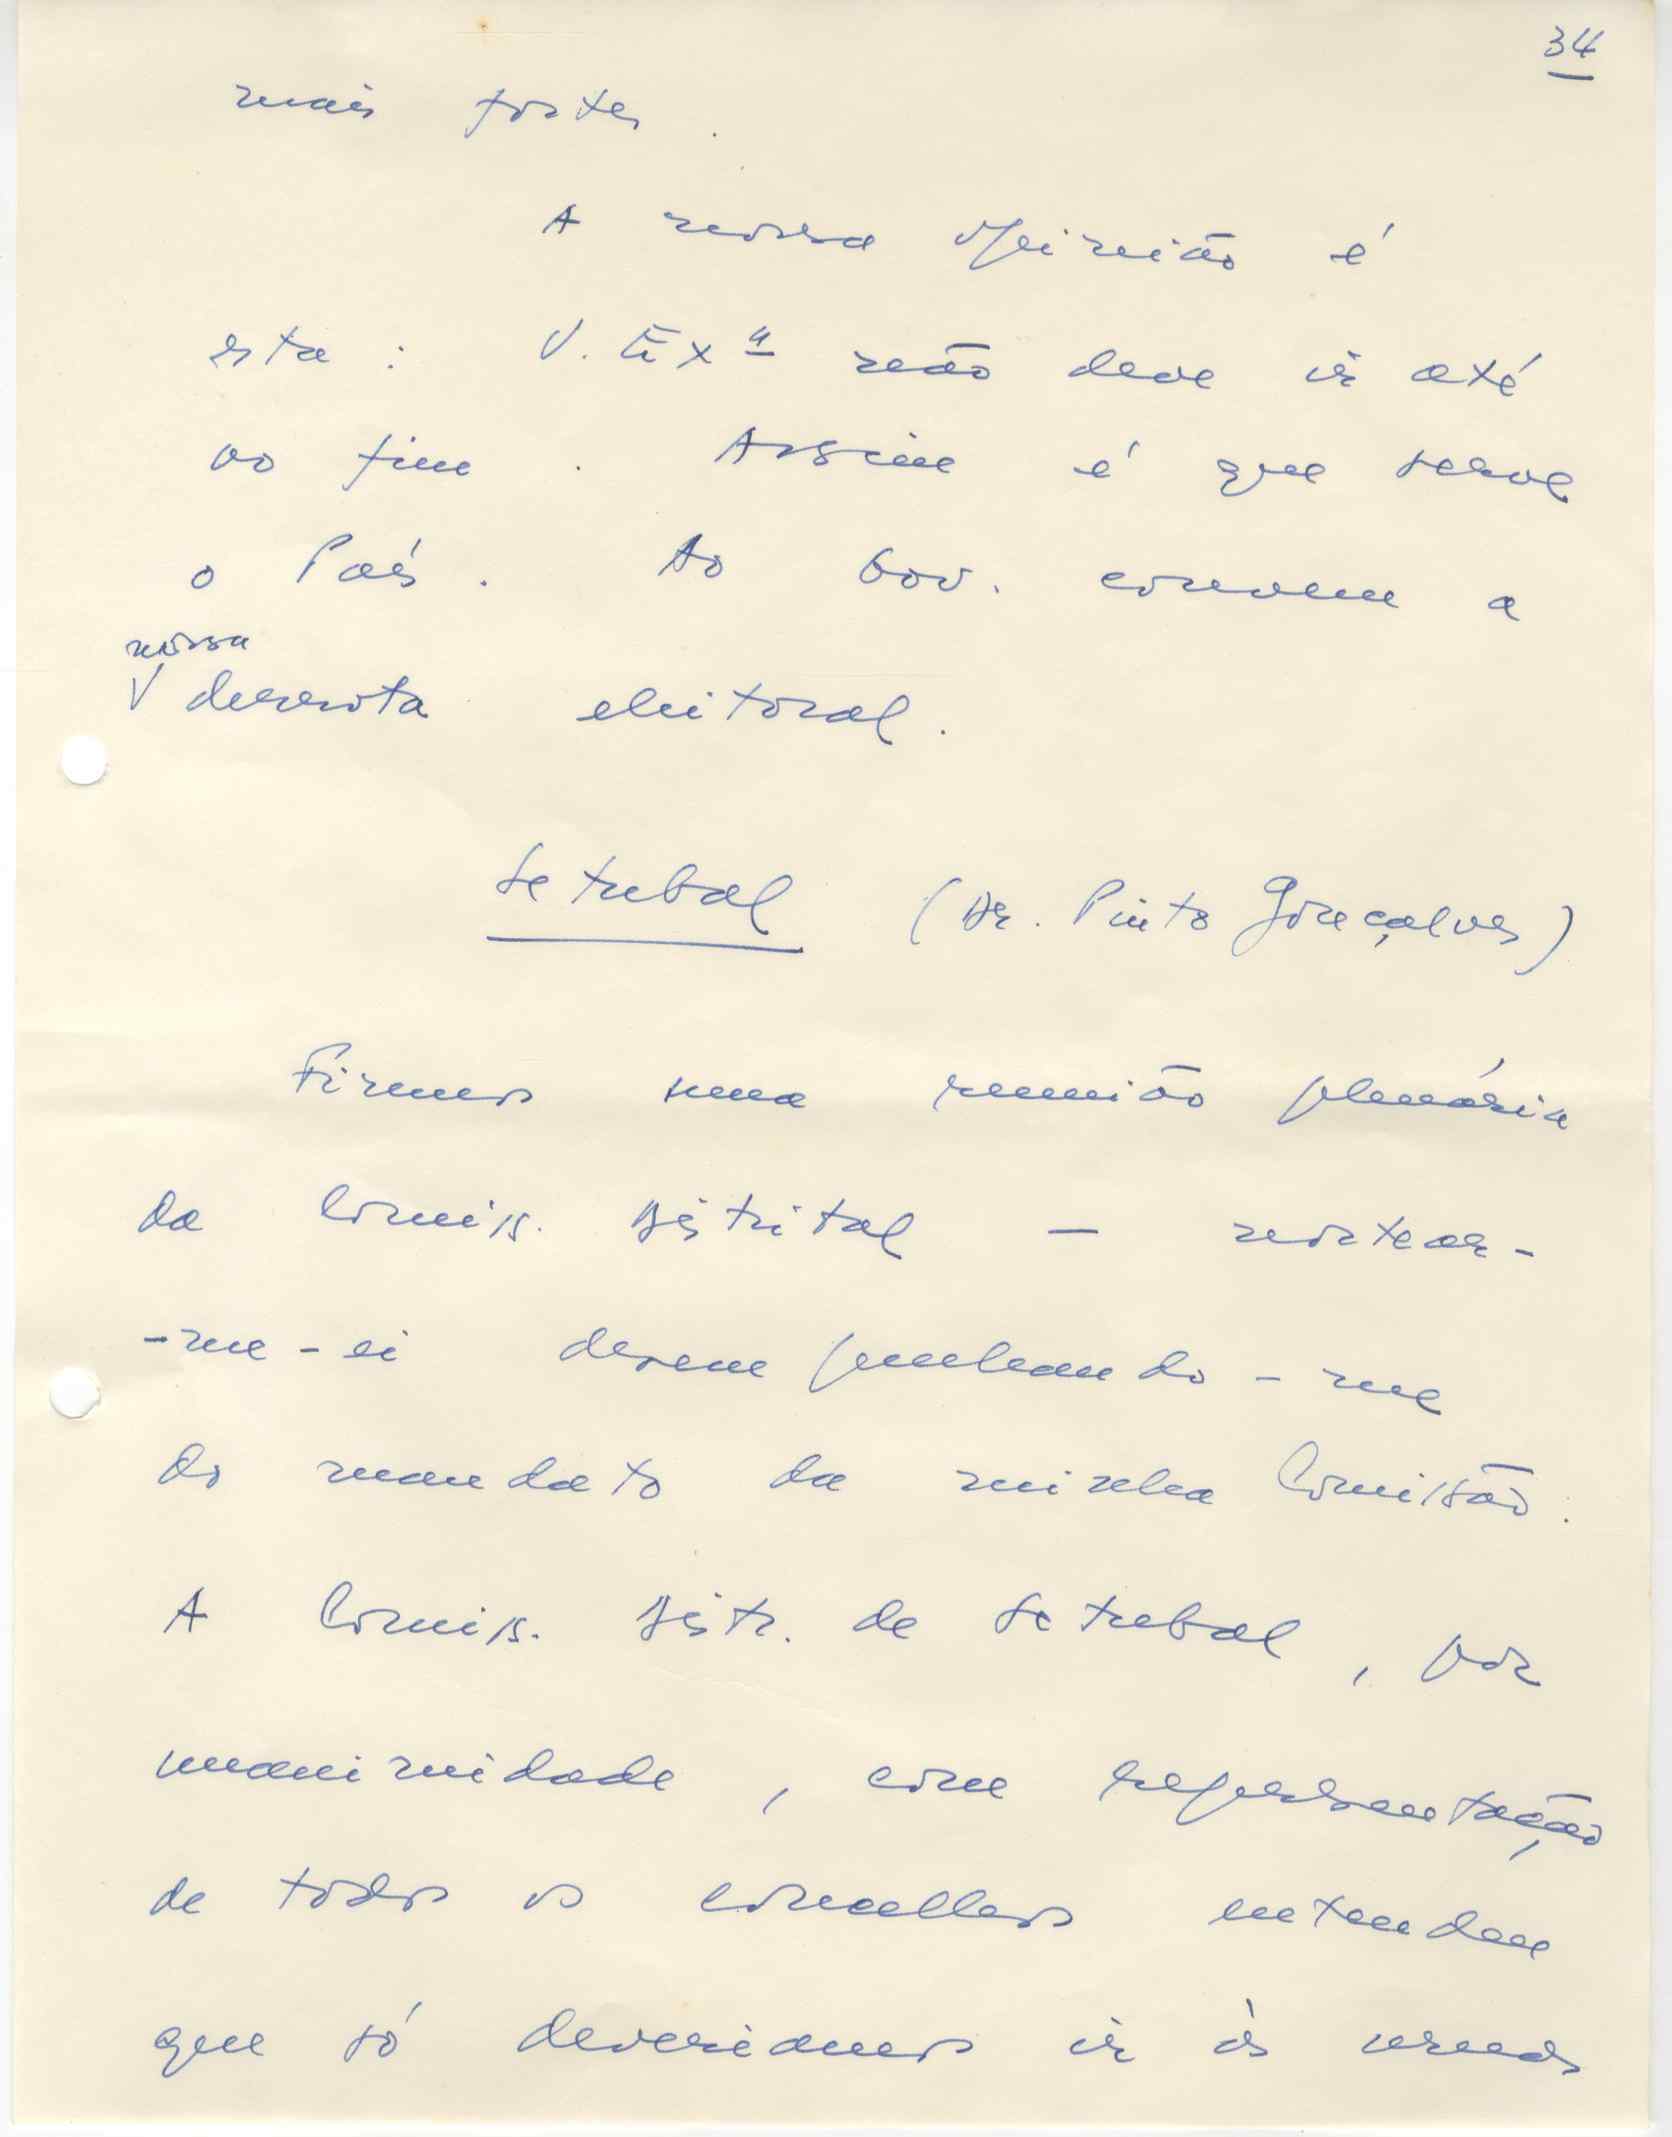 34
mais fortes.
A nossa opinião é
esta: V. Exª não deve ir até
ao fim. Assim é que serve
o País. Ao Gov. convem a
nossa
V derrota eleitoral.
Setubal (Dr. Pinto Gonçalves)
Fizemos uma reunião plenária
da Comiss. Distrital — nortear-
-me-ei desempenhando-me
do mandato da minha Comissão.
A Comiss. Distr. de Setubal, por
unanimidade, com representação
de todos os concelhos entendem
que só deveriamos ir às urnas